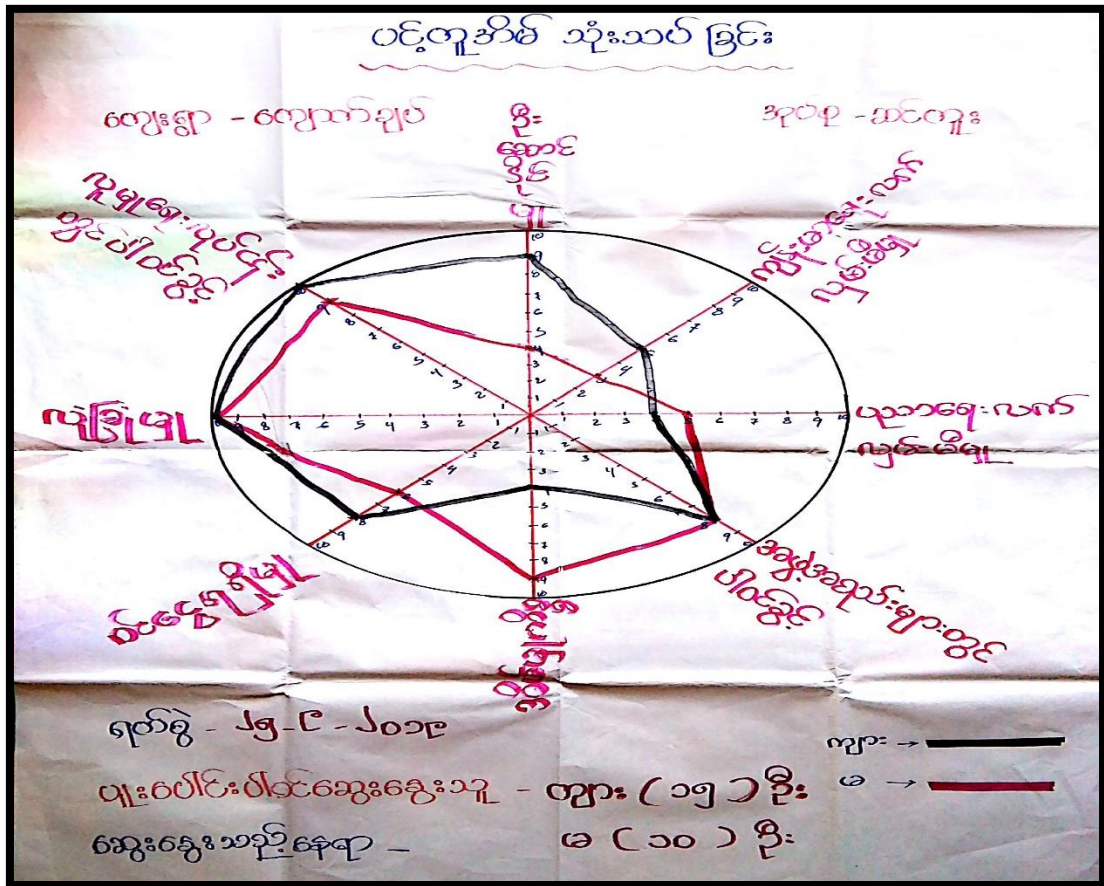 ပင့်ကူအိမ် သုံးသပ်ခြင်း
ကျေးရွာ - ကျောက်ချပ်
အုပ်စု - ဆင်ကူး
ဦး
ဆောင်
နိုင်
မှု
ကျန်းမာရေးလက်
လှမ်းမီမှု
ပညာရေးလက်
လှမ်းမီမှု
အဖွဲ့အစည်းများတွင်
ပါဝင်ခွင့်
ဝင်ငွေရရှိမှု
လုံခြုံမှု
လူမှုရေးလုပ်ငန်း
တွင်ပါဝင်ခွင့်
ရက်စွဲ - ၂၅-၉-၂၀၁၉
ပူးပေါင်းပါဝင်ဆွေးနွေးသူ - ကျား (၁၅) ဦး
မ (၁၀) ဦး
ဆွေးနွေးသည့်နေရာ -
ကျား →
မ →